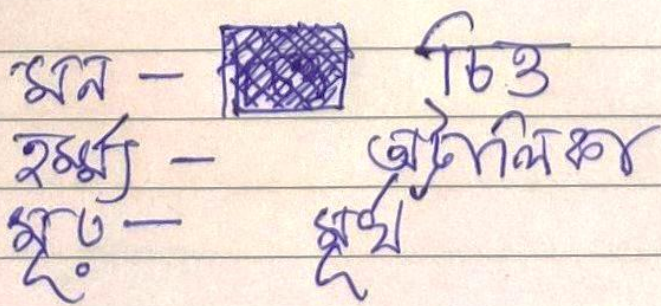 মন — চিত্ত
হর্ম্য — অট্টালিকা
মূঢ় — মূর্খ